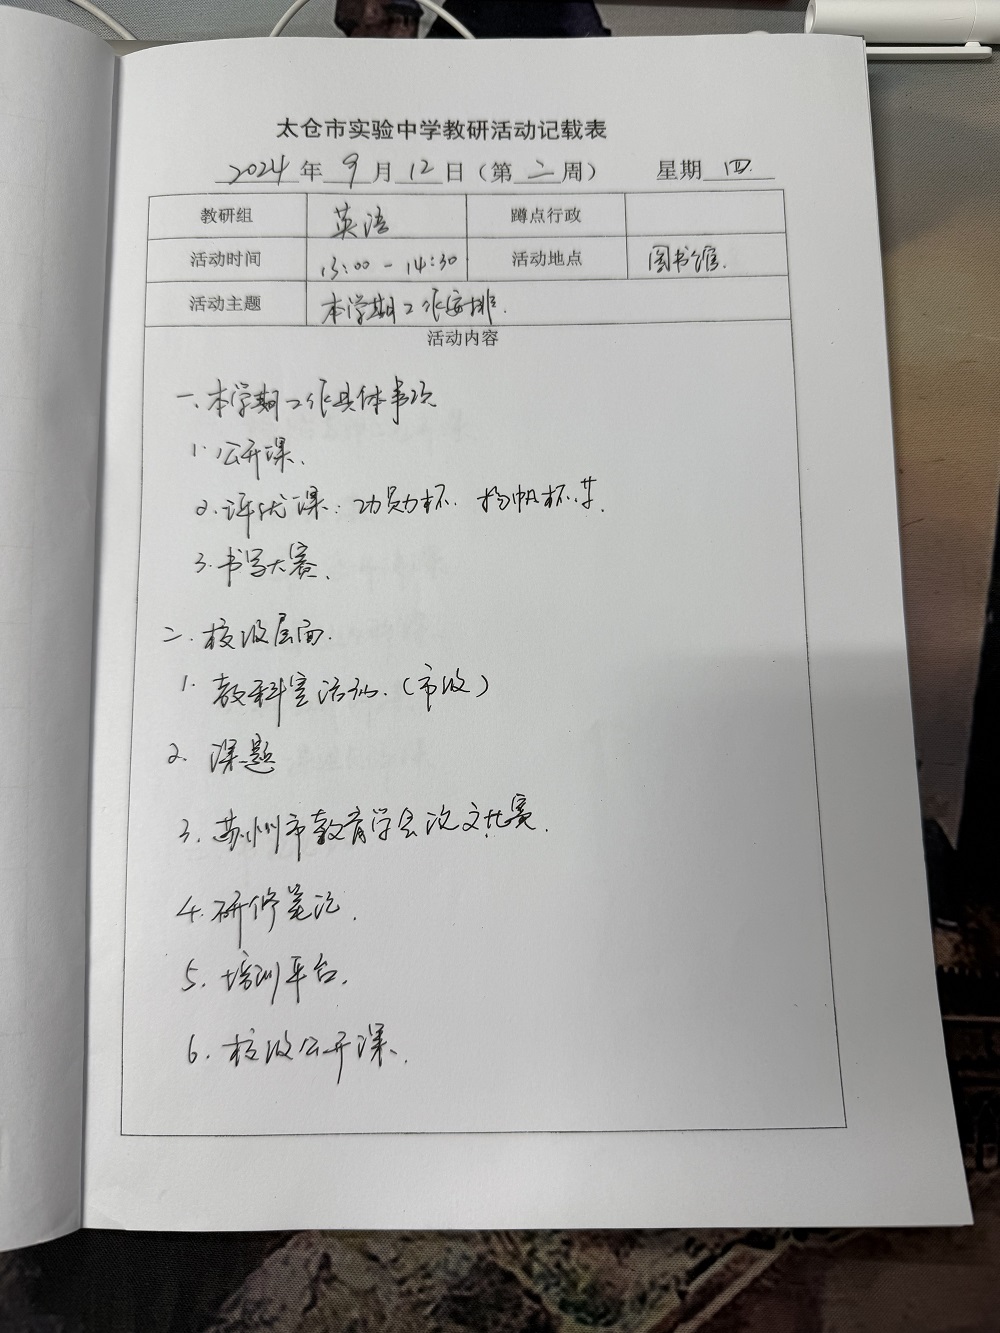 太仓市实验中学教研活动记载表
2024年9月12日（第二周） 星期四
教研组 英语 蹲点行政
活动时间 13:00-14:30 活动地点 图书馆.
活动主题 本学期工作安排.
活动内容
一、本学期工作具体事项
1. 公开课、
2. 评优课：功勋杯. 扬帆杯等.
3. 书写大赛、
二. 校级层面.
1. 教科室活动.（市级）
2. 课题
3. 苏州市教育学会论文比赛.
4. 研修笔记.
5. 培训平台.
6. 校级公开课、